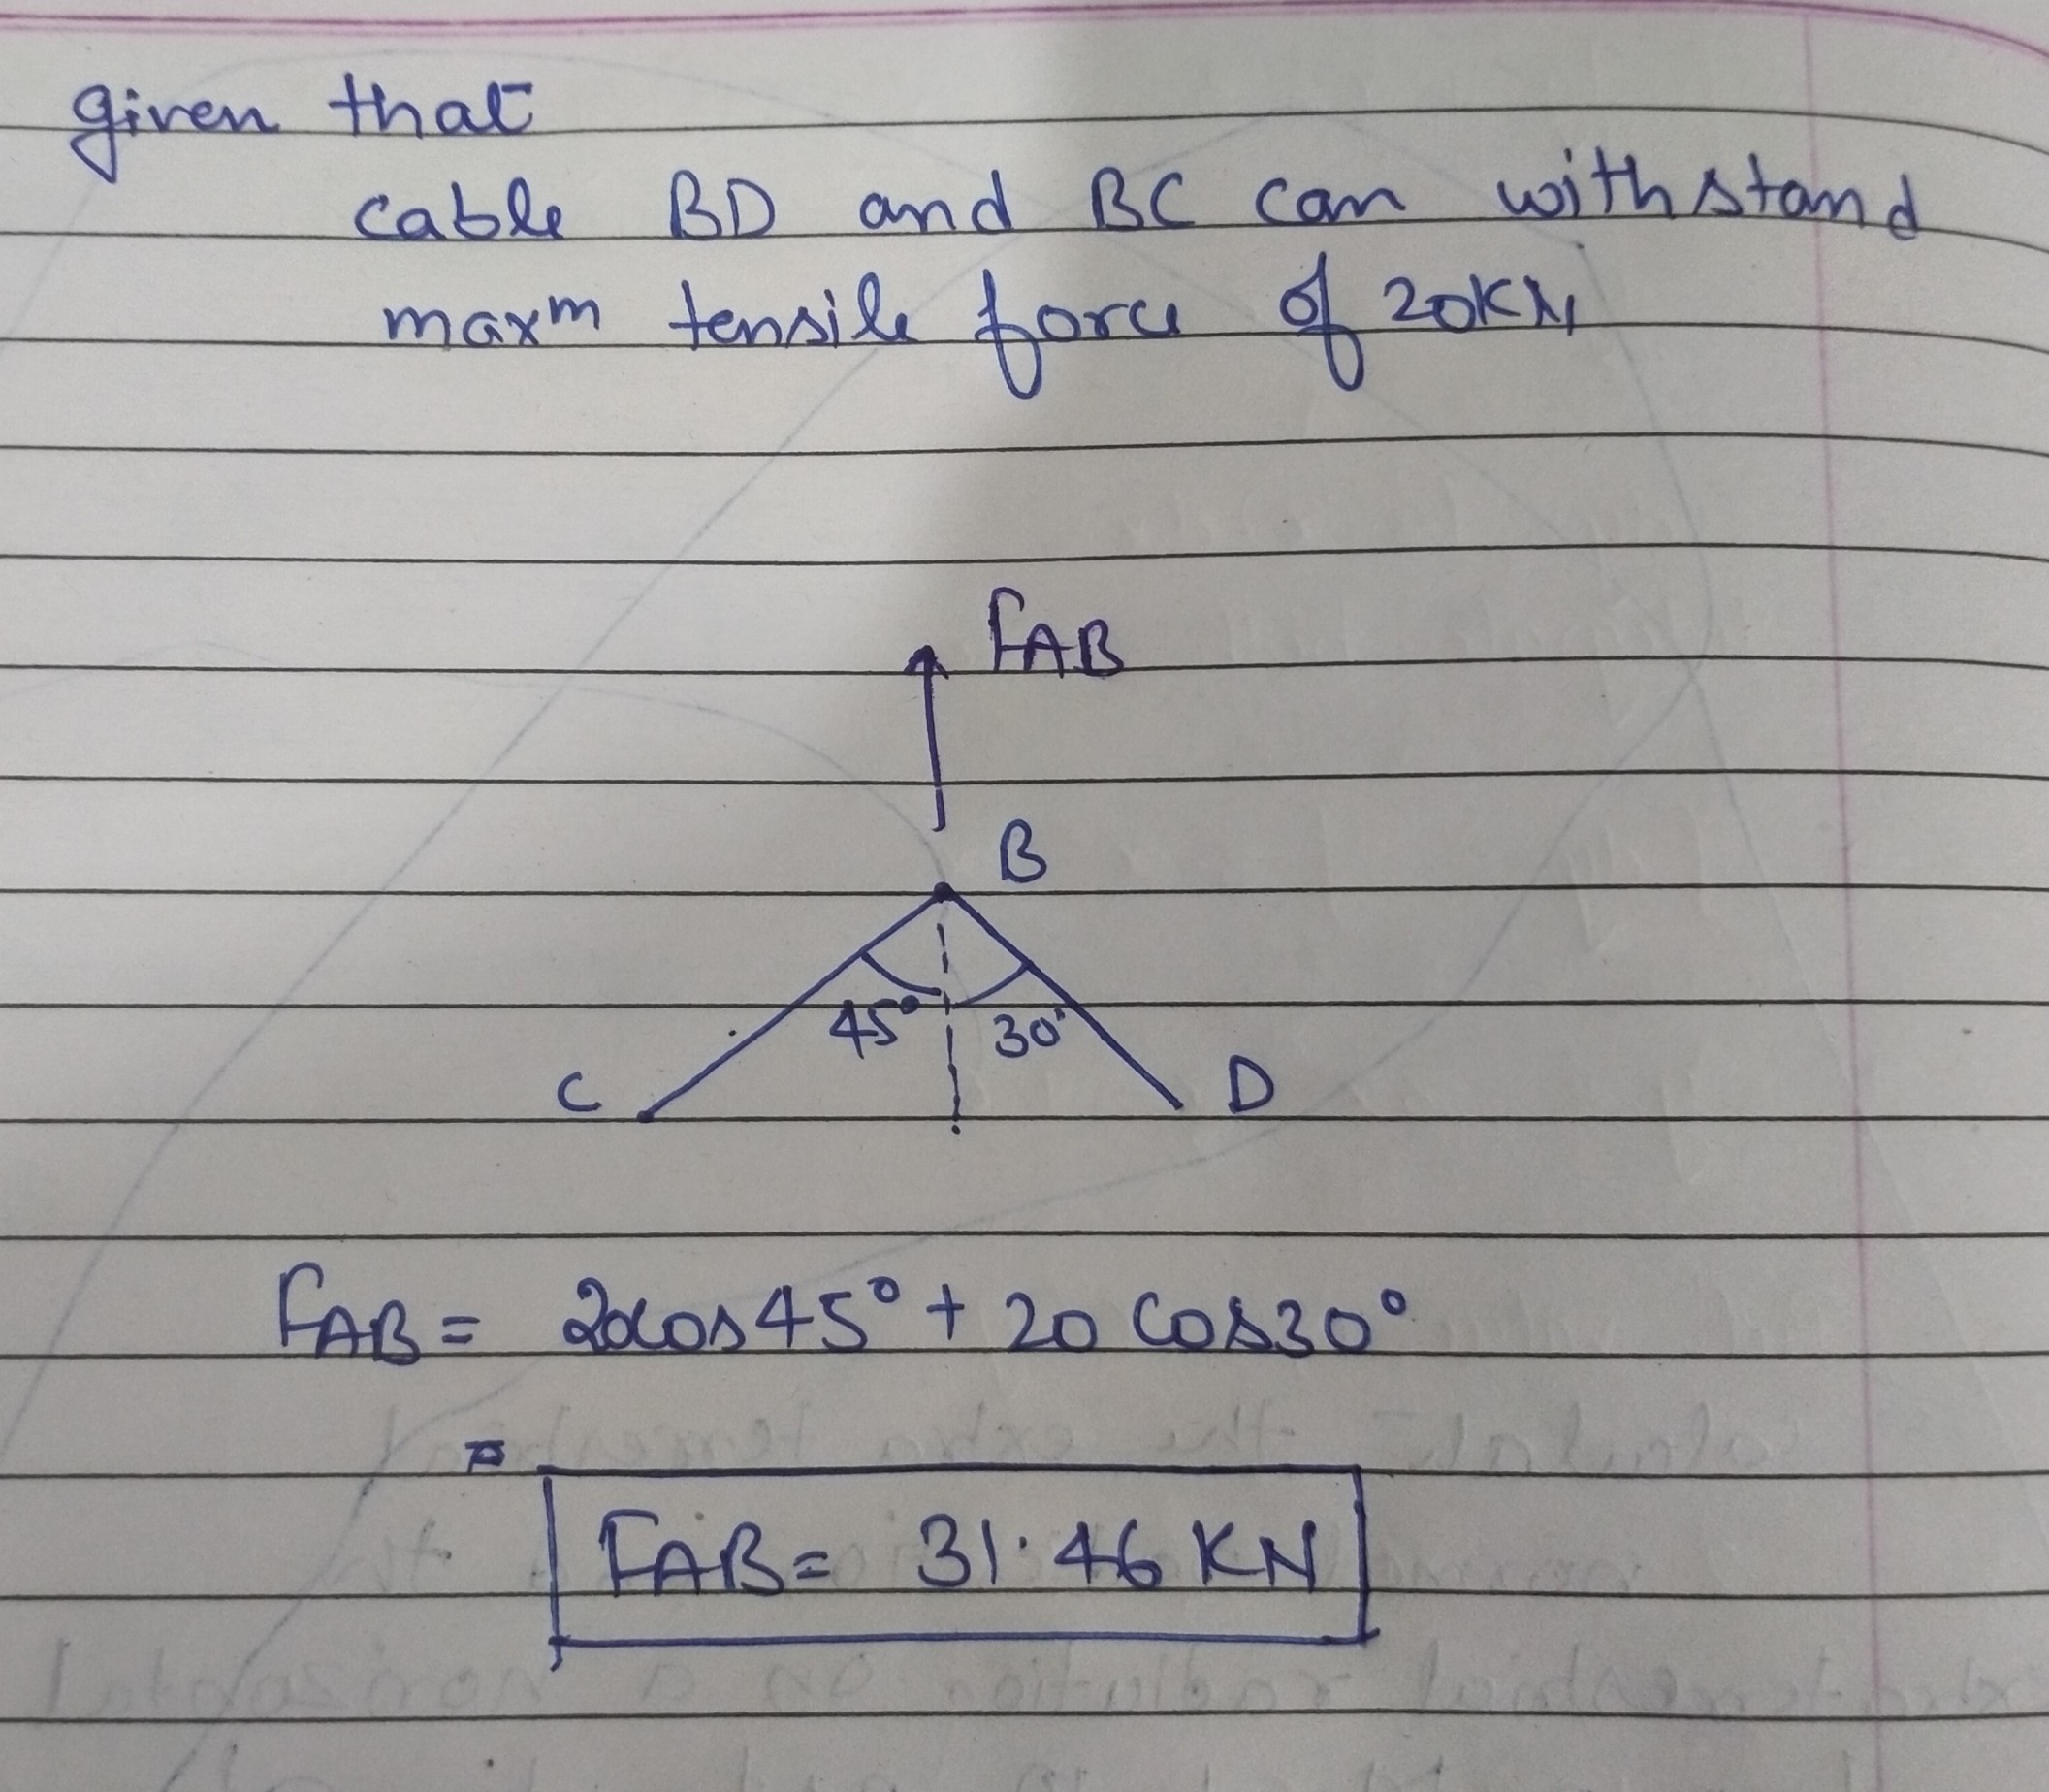 given that
cable BD and BC can withstand
maxm tensile force of 20KN
FAB
B
45° 30°
C D
FAB = 20cos45° + 20 cos30°
=
FAB = 31.46 KN